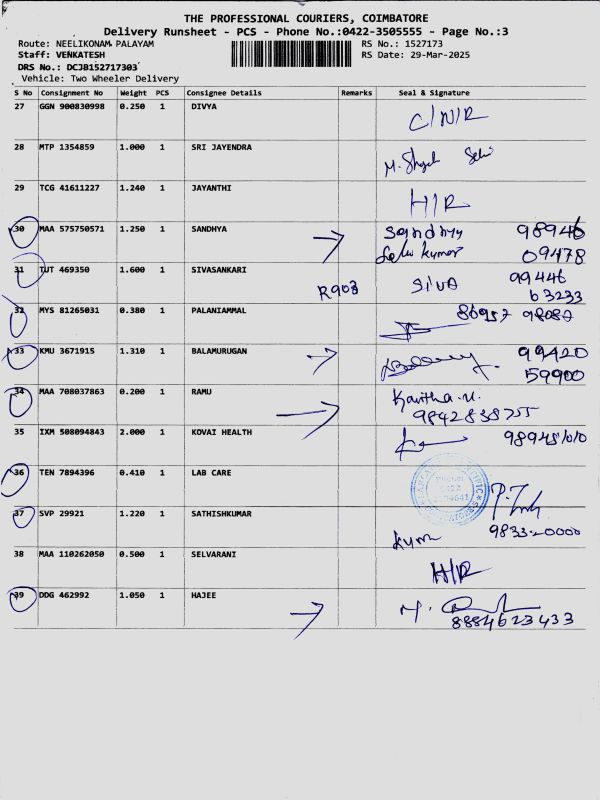 THE PROFESSIONAL COURIERS, COIMBATORE
Delivery Runsheet - PCS - Phone No.:0422-3505555 - Page No.:3
Route: NEELIKONAM PALAYAM RS No.: 1527173
Staff: VENKATESH RS Date: 29-Mar-2025
DRS No.: DCJB152717303
Vehicle: Two Wheeler Delivery
S No Consignment No Weight PCS Consignee Details Remarks Seal & Signature
27 GGN 900830998 0.250 1 DIVYA C/N/R
28 MTP 1354859 1.000 1 SRI JAYENDRA
29 TCG 41611227 1.240 1 JAYANTHI H/R
30 MAA 575750571 1.250 1 SANDHYA Sandhyy 98946
Selvi kumar 09478
31 TUT 469350 1.600 1 SIVASANKARI R903 SIVA 99446
63233
32 MYS 81265031 0.380 1 PALANIAMMAL 86957 98087
33 KMU 3671915 1.310 1 BALAMURUGAN 99420
59900
34 MAA 708037863 0.200 1 RAMU Kavitha.u.
9842838755
35 IXM 508094843 2.000 1 KOVAI HEALTH
36 TEN 7894396 0.410 1 LAB CARE
37 SVP 29921 1.220 1 SATHISHKUMAR Kumar 9833-20000
38 MAA 110262050 0.500 1 SELVARANI H/R
39 DDG 462992 1.050 1 HAJEE
8884623433